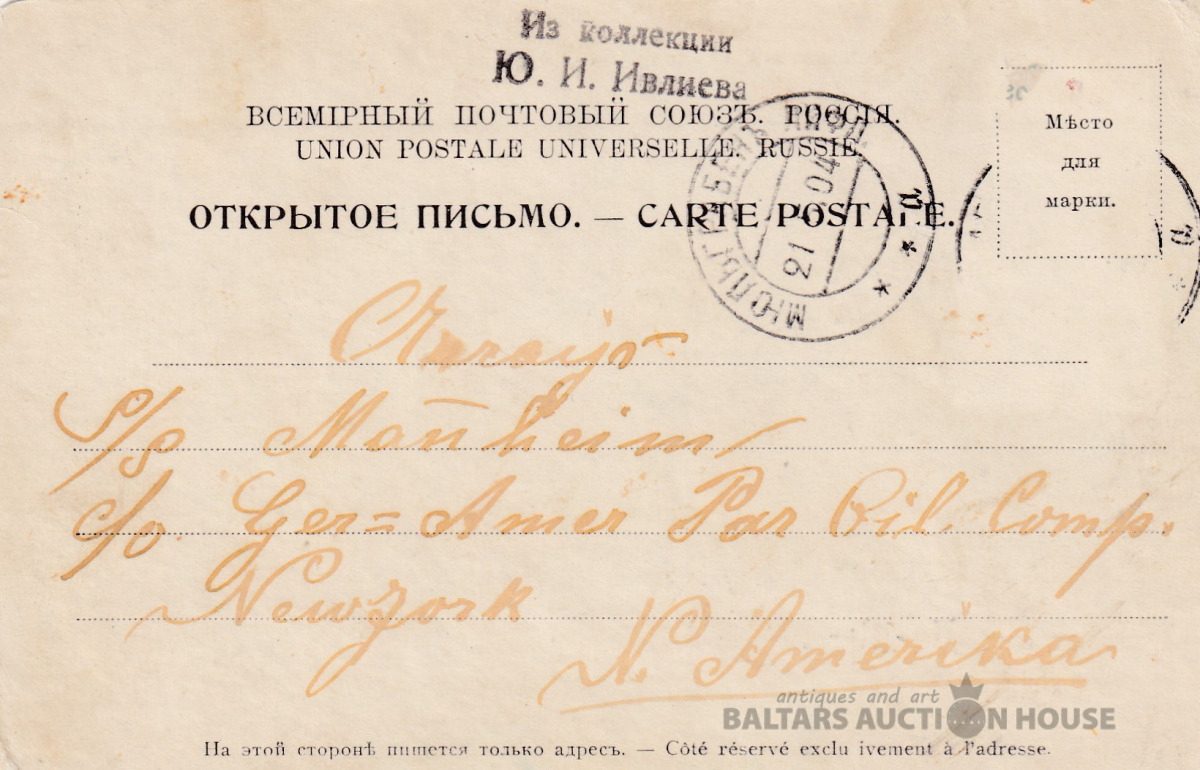 Из коллекции
Ю. И. Ивлиева
ВСЕМІРНЫЙ ПОЧТОВЫЙ СОЮЗЪ. РОССІЯ.
UNION POSTALE UNIVERSELLE. RUSSIE.
ОТКРЫТОЕ ПИСЬМО. — CARTE POSTALE.
Мѣсто
для
марки.
21 04
S/S Manheim
c/o. Ger=Amer Par Oil. Comp.
Newzork
N. Amerika
antiques and art
BALTARS AUCTION HOUSE
На этой сторонѣ пишется только адресъ. — Côté réservé exclu ivement à l'adresse.